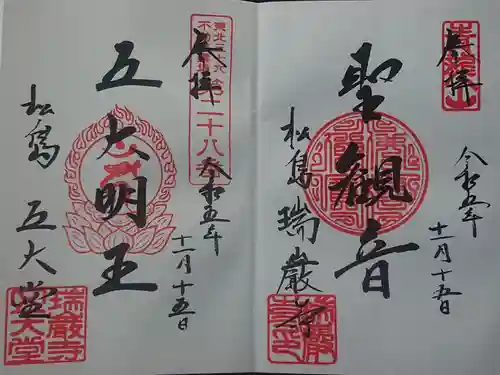 奉拝
令和五年
十一月十五日
聖観音
松島 瑞巌寺
奉拝
二十八番
令和五年
十一月十五日
五大明王
松島 五大堂
瑞巌寺
五大堂